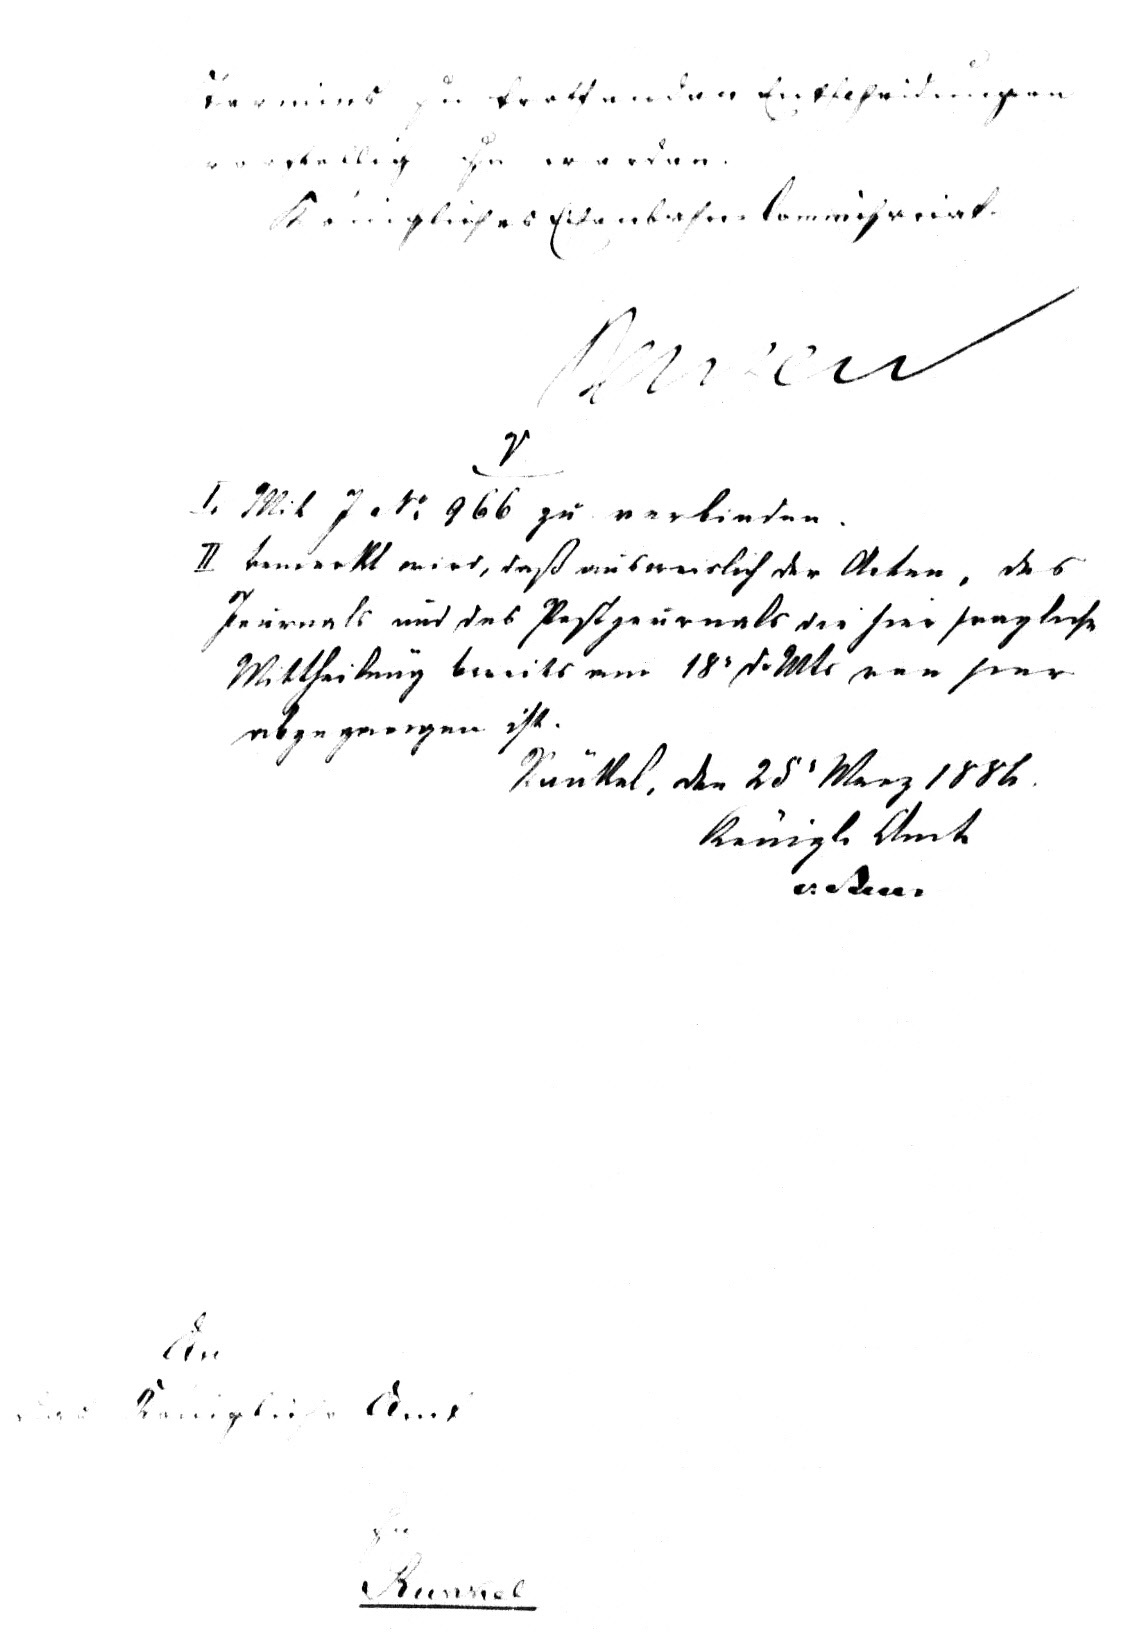 Termins zu treffenden Entscheidungen
vorstellig zu werden.
Königliches Eisenbahn-Commissariat.
V
I. Mit J. No. 966 zu verbinden.
II bemerkt wird, daß ausweislich der Acten, des
Journals und des Postjournals die hier fragliche
Mittheilung bereits am 18. d. Mts von hier
abgegangen ist.
Runkel, den 25. März 1886.
Königl. Amt
An
das Königliche Amt
zu
Runkel